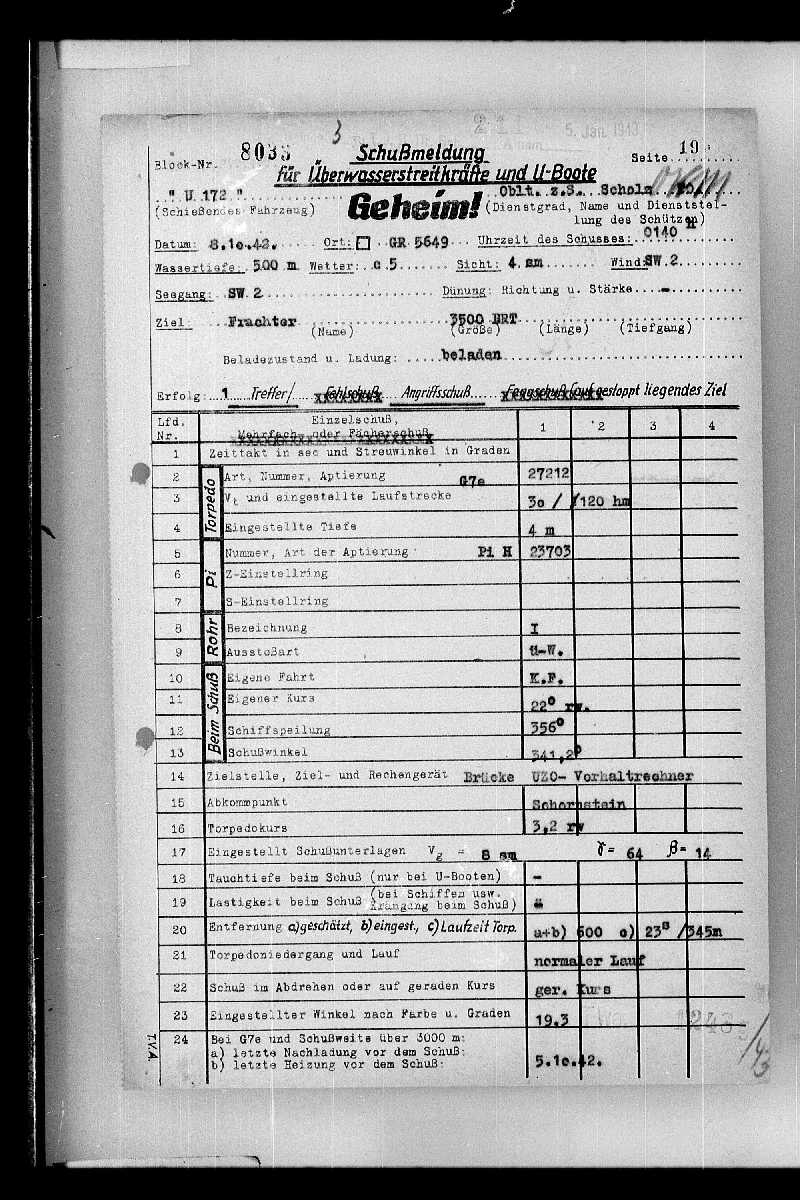 3
211 5. Jan. 1943
Block-Nr. 8033 Schußmeldung Seite 19
für Überwasserstreitkräfte und U-Boote
" U 172 " Geheim! Oblt. z.S. Scholz
(Schießendes Fahrzeug) (Dienstgrad, Name und Dienststel-
lung des Schützen)
Datum: 8.10.42. Ort: GR 5649 Uhrzeit des Schusses: 0140 H
Wassertiefe: 500 m Wetter: c 5 Sicht: 4 sm Wind: SW.2
Seegang: SW 2 Dünung: Richtung u. Stärke -
Ziel Frachter 3500 BRT
(Name) (Größe) (Länge) (Tiefgang)
Beladezustand u. Ladung: beladen
Erfolg: 1 Treffer/ Fehlschuß Angriffsschuß Fangschuß (auf gestoppt liegendes Ziel
Lfd. Nr. Einzelschuß, 1 2 3 4
Mehrfach- oder Fächerschuß
1 Zeittakt in sec und Streuwinkel in Graden
Torpedo
2 Art, Nummer, Aptierung G7e 27212
3 Vt und eingestellte Laufstrecke 30 / /120 hm
4 Eingestellte Tiefe 4 m
Pi
5 Nummer, Art der Aptierung Pi H 23703
6 Z-Einstellring
7 S-Einstellring
Rohr
8 Bezeichnung I
9 Ausstoßart ü-W.
Beim Schuß
10 Eigene Fahrt K.F.
11 Eigener Kurs 22° rw.
12 Schiffspeilung 356°
13 Schußwinkel 341,2°
14 Zielstelle, Ziel- und Rechengerät Brücke UZO- Vorhaltrechner
15 Abkommpunkt Schornstein
16 Torpedokurs 3,2 rw
17 Eingestellt Schußunterlagen Vg = 8 sm γ= 64 β= 14
18 Tauchtiefe beim Schuß (nur bei U-Booten) -
19 Lastigkeit beim Schuß (bei Schiffen usw.
Krängung beim Schuß)
20 Entfernung a) geschätzt, b) eingest., c) Laufzeit Torp. a+b) 600 c) 23s /345m
21 Torpedoniedergang und Lauf normaler Lauf
22 Schuß im Abdrehen oder auf geraden Kurs ger. Kurs
23 Eingestellter Winkel nach Farbe u. Graden 19.3
24 Bei G7e und Schußweite über 3000 m:
a) letzte Nachladung vor dem Schuß:
b) letzte Heizung vor dem Schuß: 5.10.42.
T.V.A.